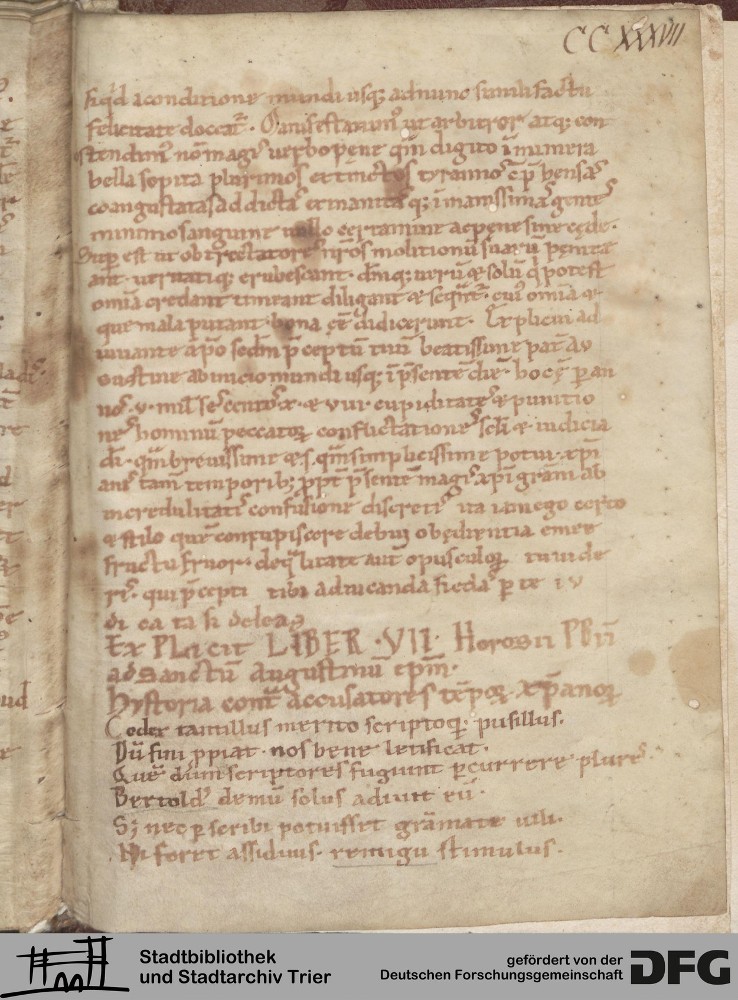 CCXXXVII
siq̇d aconditione mundi usq; adnunc simili factu
felicitate doceat᷒. Manifestauim᷒ ut arbitror atq; con
ostendim᷒ nō magis uerbo pene qm̄ digito īnumera
bella sopita plurimos extinctos tyrannos cōp̄hensas
coangustatas addictas exmanitasq; īmanissimas gentes
minimo sanguine nullo certamine ac pene sine cede.
Sup̄ est ut obtrectatores nr̄os molitionū suarū penitea
ant. ueritatiq; erubescant. dm̄q; uerū & solū q̇ potest
omīa credant timeant diligant & seq̄nt᷒. cui᷒ omīa &
que mala putant bona eē didicerint. Explicui ad
iuuante xp̄o scdm̄ p̄ceptū tuū beatissime pat̄ Au
gustine ab inicio mundi usq; ī p̄sentē diē. hoc ē p̄ an
nos. v. mil̄ sescentos x. & viii cupiditates & punitio
nes hominū peccatoꝝ conflictationes scl̄i & iudicia
dī. qm̄ breuissime & s. qm̄ simplicissime potui. xp̄i
anis tam̄ temporib; ppt̄ p̄sentē magis xp̄i grām ab
incredulitatis confusione discretis ita iamego certo
& solo quē concupiscere debui obedientia emee
fructu fruor. deq̄litate aut̄ opusculoꝝ tu uide
ris. qui p̄cepti tibi adiucanda si edas p̄ te iu
di ca ta si deleas
Explicit LIBER . VII . Horosii Pbr̄i
ad Sanctū Augustinū ep̄m.
Hystoria cont̄ accusatores tēpoꝝ xp̄anoꝝ
Codex tantillus merito scriptoq; pusillus.
Dū fini ppiat. nos bene letificat.
Quē dūm scriptores fugiunt p̄currere plures.
Bertold᷒ demū solus adiuit eū.
S; nec p̄scribi potuisset grāmate uili.
Ni foret assiduus. remigii stimulus.
Stadtbibliothek
und Stadtarchiv Trier
gefördert von der
Deutschen Forschungsgemeinschaft
DFG